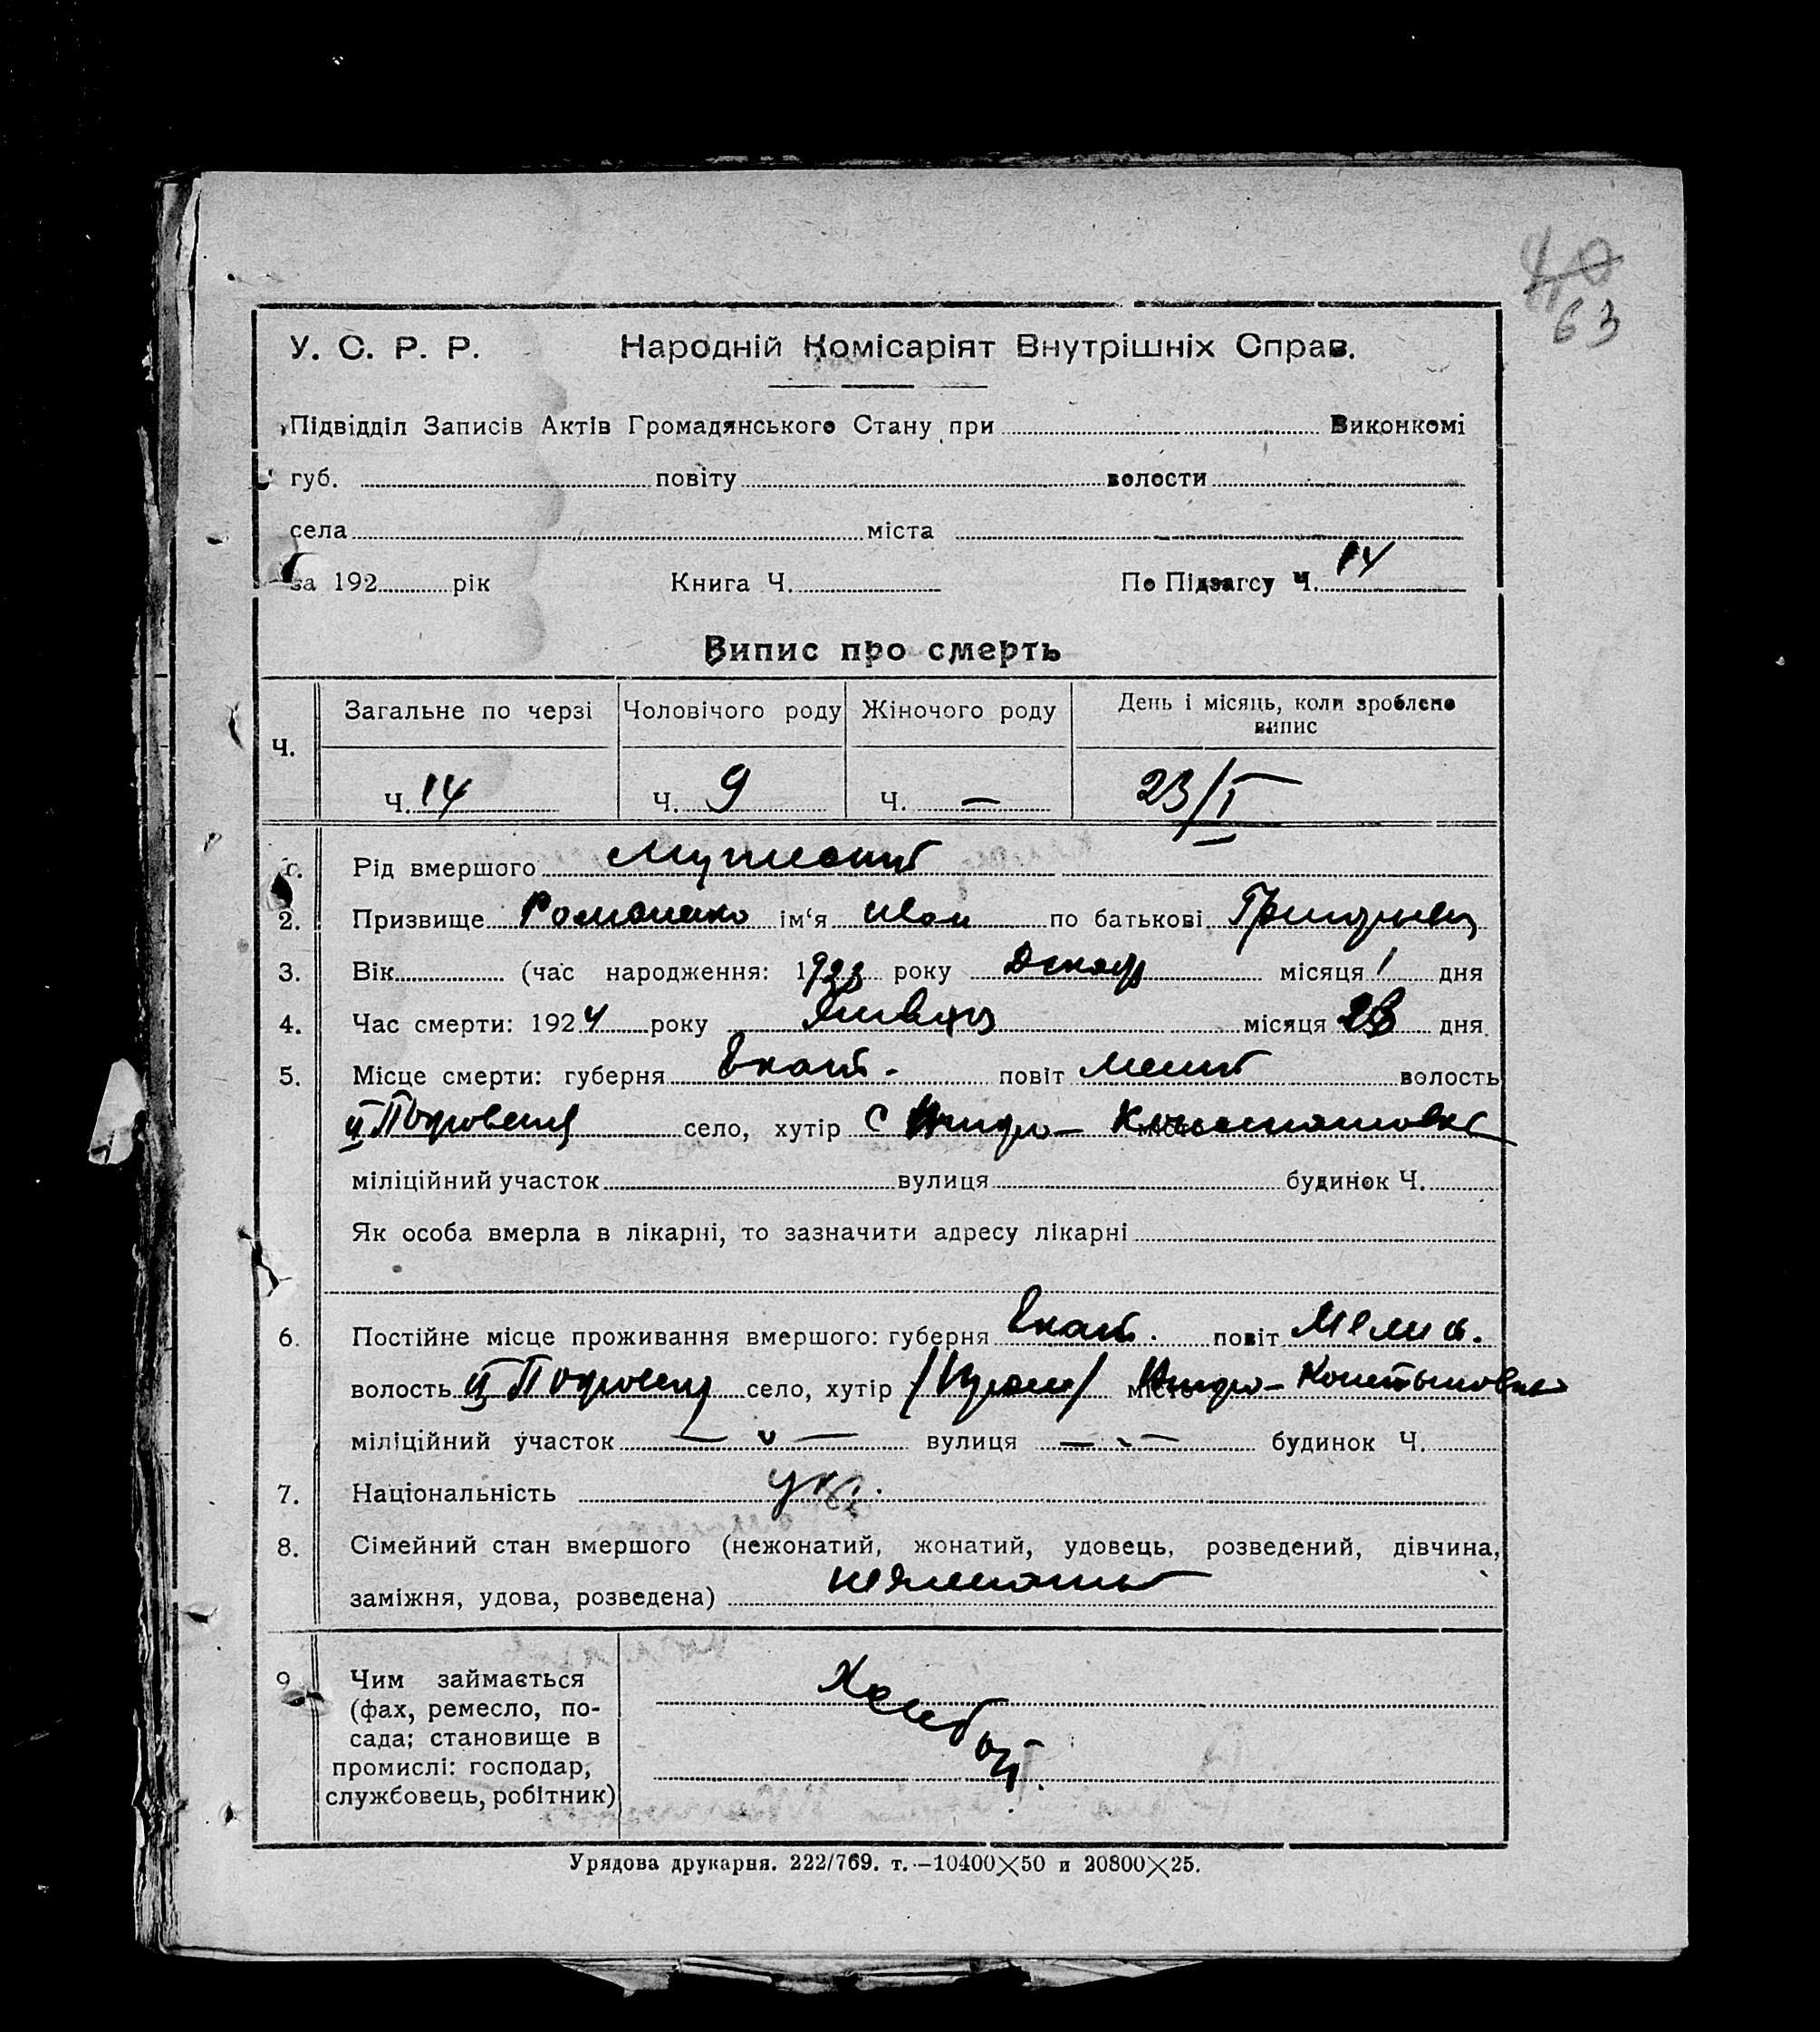 40
63
У. С. Р. Р. Народній Комісаріят Внутрішніх Справ.
Підвідділ Записів Актів Громадянського Стану при Виконкомі
губ. повіту волости
села міста
за 192 рік Книга Ч. По Підзагсу Ч. 14
Випис про смерть
Ч. Загальне по черзі Чоловічого роду Жіночого роду День і місяць, коли зроблено випис
Ч. 14 Ч. 9 Ч. — 23/I
Рід вмершого
2. Призвище Романенко ім‘я Иван по батькові
3. Вік (час народження: 1923 року Декабр місяця 1 дня
4. Час смерти: 1924 року Январ місяця 23 дня.
5. Місце смерти: губерня Екат. повіт Мелит волость
II Покровская село, хутір С
міліційний участок вулиця будинок Ч.
Як особа вмерла в лікарні, то зазначити адресу лікарні
6. Постійне місце проживання вмершого: губерня Екат. повіт Мелит.
волость II Покровская село, хутір
міліційний участок — " — вулиця — " — будинок Ч.
7. Національність укр.
8. Сімейний стан вмершого (нежонатий, жонатий, удовець, розведений, дівчина,
заміжня, удова, розведена)
9. Чим займається
(фах, ремесло, по-
сада; становище в
промислі: господар,
службовець, робітник)
Хлебор.
Урядова друкарня. 222/769. т.—10400×50 и 20800×25.